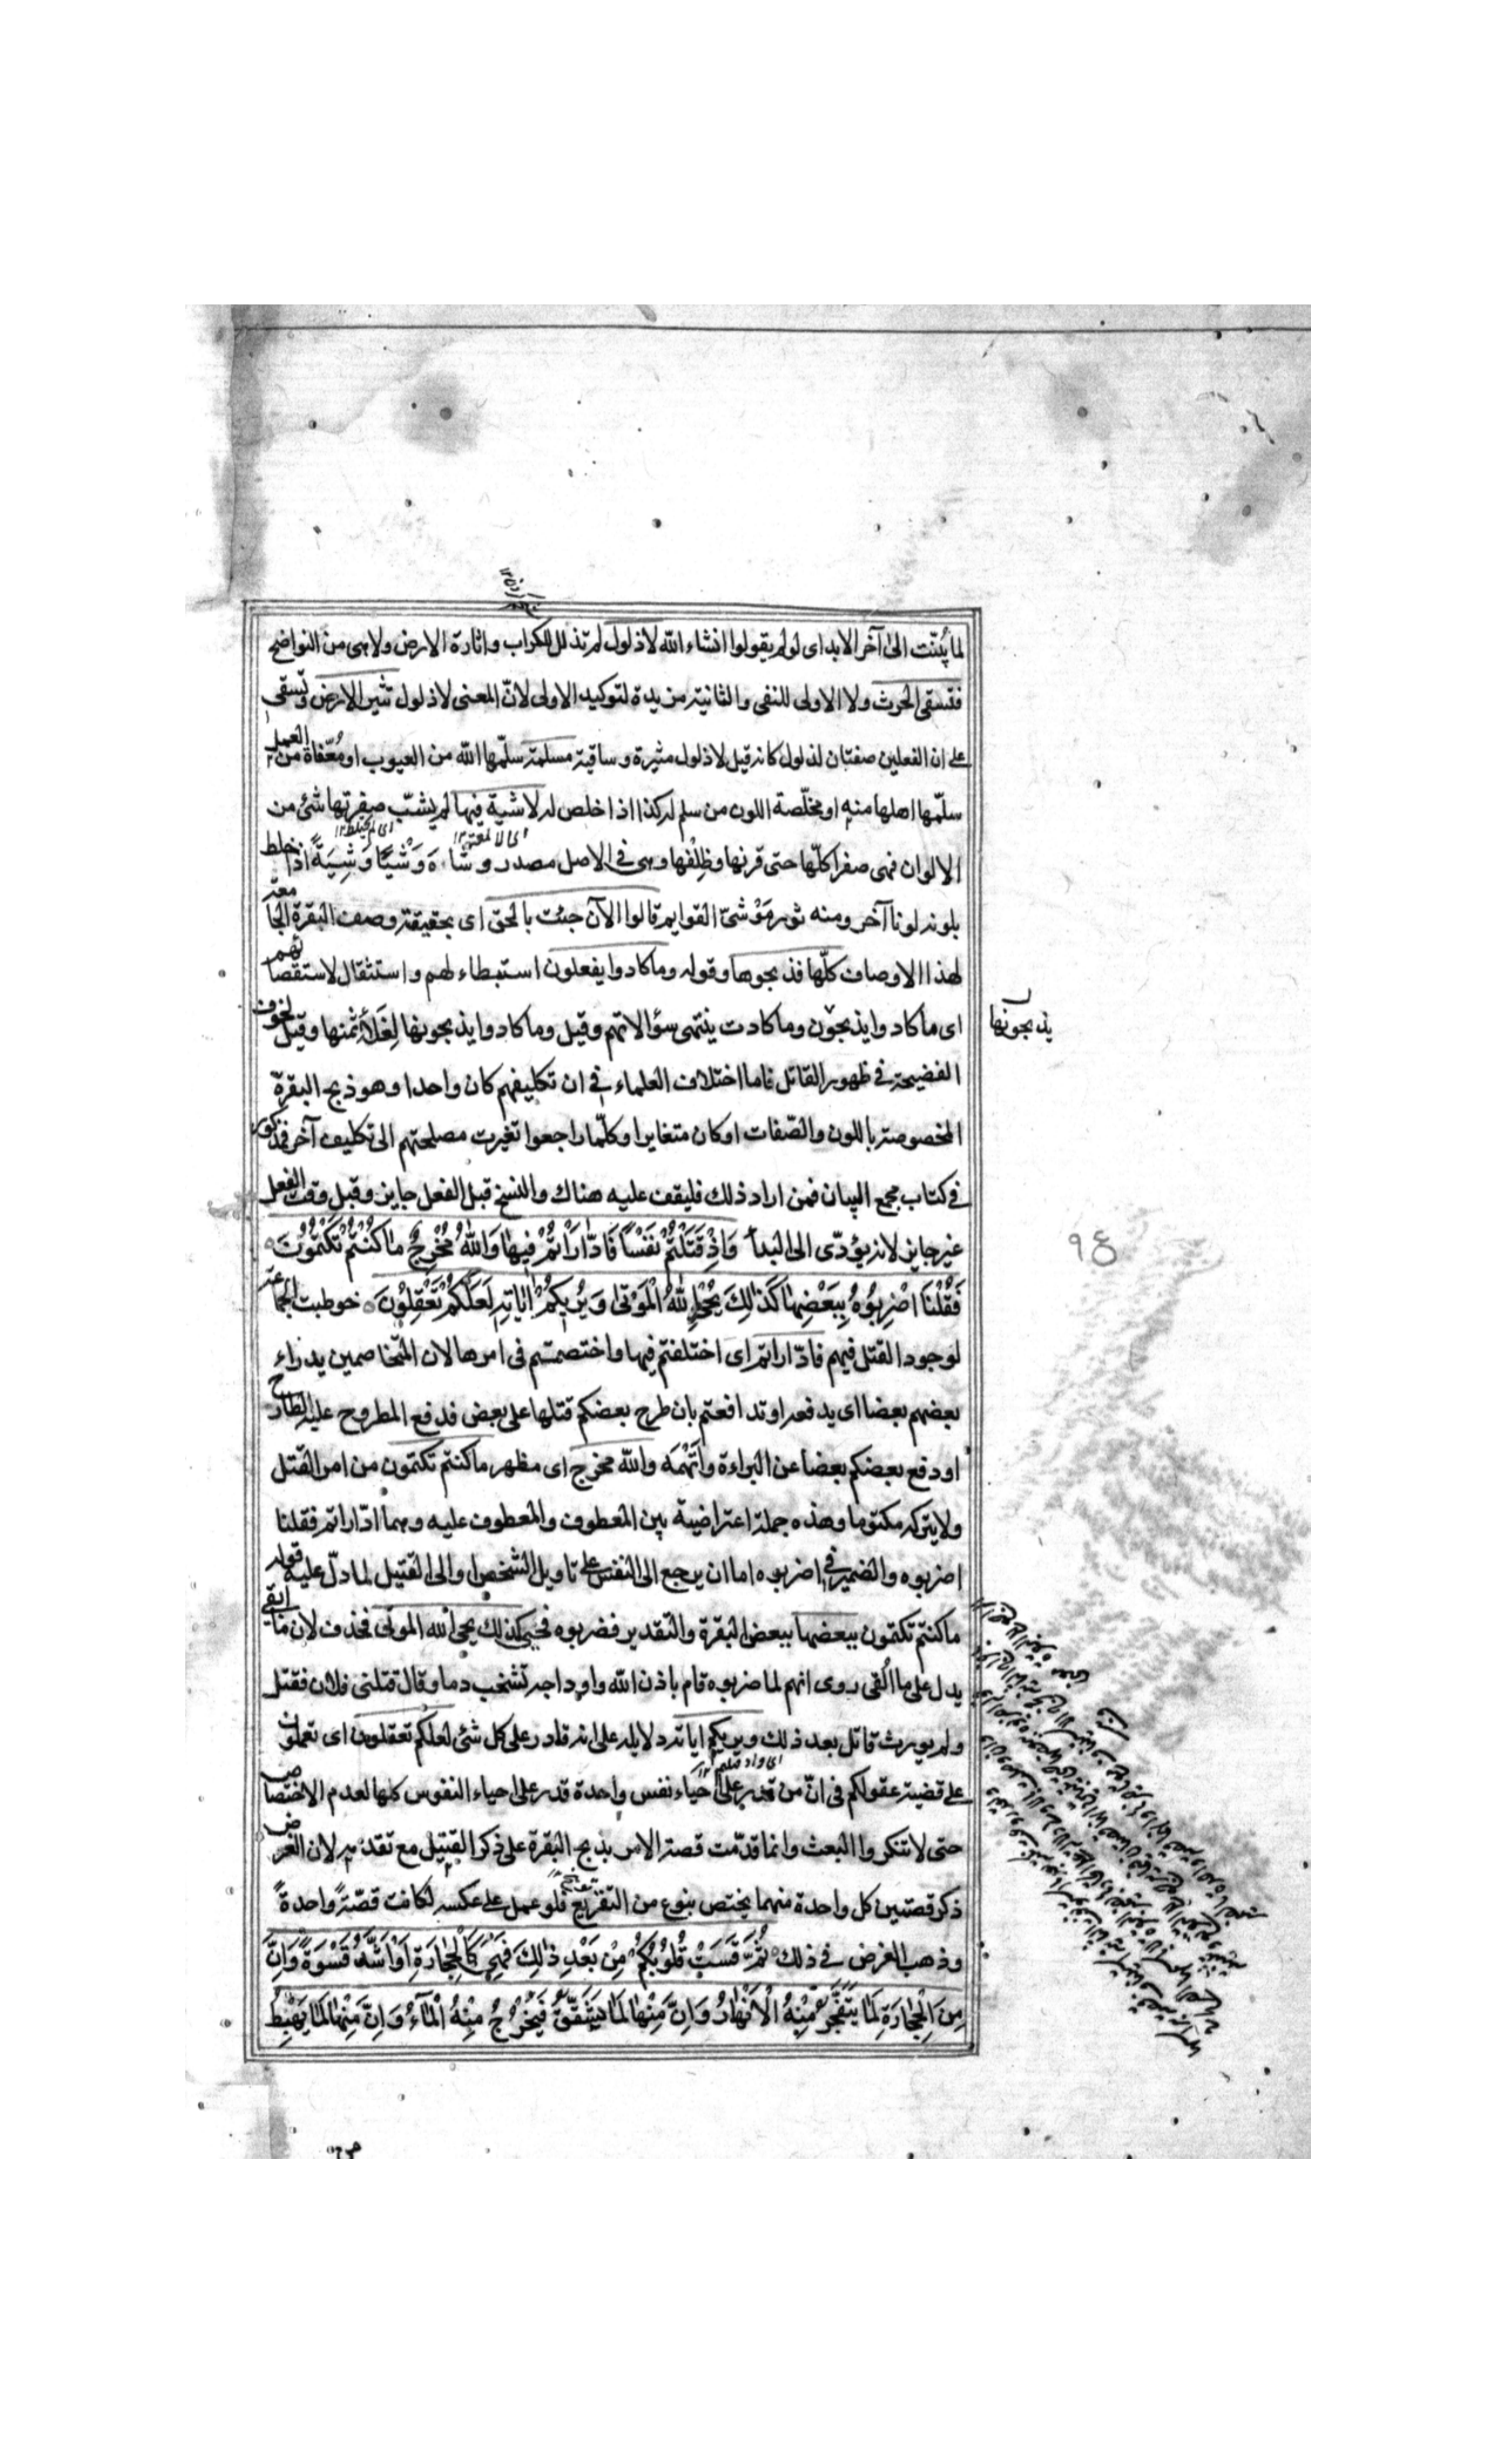 لما بُيّنت الى آخر الابد اى لو لم يقولوا انشاء الله لا ذلول لم تذلل للكراب واثارة الارض ولا هى من النواضح
فتسقى الحرث ولا الاولى للنفى والثانية مزيدة لتوكيد الاولى لانّ المعنى لا ذلول تثير الارض وتسقى
على ان الفعلين صفتان لذلول كانه قيل لا ذلول مثيرة وساقية مسلمة سلّمها الله من العيوب او مُعّفاة من العمل
سلّمها اهلها منه او مخلّصة اللون من سلم له كذا اذا خلص له لا شية فيها لم يشب صفرتها شئ من
الالوان فهى صفرا كلّها حتى قرنها وظِلْفها وهى فى الاصل مصدر وشاه وَشْيًا وَشِيَةً اذا خلط
بلونه لونا آخر ومنه ثور مَوْشىّ القوايم قالوا الآن جئت بالحق اى بحقيقة وصف البقرة الجامعة
لهذا الاوصاف كلّها فذبحوها وقوله وما كادوا يفعلون استبطاء لهم واستثقال لاستقصائهم
اى ما كادوا يذبحون وما كادت ينتهى سؤالاتهم وقيل وما كادوا يذبحونها لِغَلاء ثمنها وقيل لخوف
يذبحونها
الفضيحة فى ظهور القاتل فاما اختلاف العلماء فى ان تكليفهم كان واحدا وهو ذبح البقرة
المخصوصة باللون والصّفات او كان متغايرا وكلّما راجعوا تغيرت مصلحتهم الى تكليف آخر فمذكور
فى كتاب مجمع البيان فمن اراد ذلك فليقف عليه هناك والنسخ قبل الفعل جايز وقبل وقت الفعل
غير جايز لانه يؤدّى الى البدأ وَاِذْ قَتَلْتُمْ نَفْسًا فَادّٰارَاْتُمْ فِيهٰا وَاللّٰهُ مُخْرِجٌ مٰا كُنْتُمْ تَكْتُمُونَ
٩٤
فَقُلْنَا اضْرِبُوهُ بِبَعْضِهٰا كَذٰلِكَ يُحْيِ اللّٰهُ الْمَوْتٰى وَيُرِيكُمْ اٰيٰاتِهِ لَعَلَّكُمْ تَعْقِلُونَ خوطبت الجماعة
لوجود القتل فيهم فادّاراتم اى اختلفتم فيها واختصمتم فى امرها لان المتخاصمين يدراء
بعضهم بعضا اى يدفعه او تدافعتم بان طرح بعضكم قتلها على بعض فدفع المطروح عليه الطارح
او دفع بعضكم بعضا عن البراءة واتّهمه والله مخرج اى مظهر ما كنتم تكتمون من امر القتل
ولا يتركه مكتوما وهذه جملة اعتراضية بين المعطوف والمعطوف عليه وهما ادّاراتم فقلنا
اضربوه والضمير فى اضربوه اما ان يرجع الى النفس على تاويل الشخص او الى القتيل لما دلّ عليه قوله
ما كنتم تكتمون ببعضها ببعض البقرة والتقدير فضربوه فحيى كذلك يحيى الله الموتى فحذف لان ما ابقى
يدل على ما القى روى انهم لما ضربوه قام باذن الله واوداجه تشخب دما وقال قتلنى فلان فقتل
ولم يورث قاتل بعد ذلك ويريكم اياته دلايله على انه قادر على كل شئ لعلكم تعقلون اى تعملون
على قضية عقولكم فى انّ من قدر على احياء نفس واحدة قدر على احياء النفوس كلها لعدم الاختصاص
حتى لا تنكروا البعث وانما قدّمت قصة الامر بذبح البقرة على ذكر القتيل مع تقدّمه لان الغرض
ذكر قصتين كل واحدة منهما يختص بنوع من التقريع فلو عمل على عكسه لكانت قصّة واحدة
وذهب الغرض فى ذلك ثُمَّ قَسَتْ قُلُوبُكُمْ مِنْ بَعْدِ ذٰلِكَ فَهِىَ كَالْحِجٰارَةِ اَوْ اَشَدُّ قَسْوَةً وَاِنَّ
مِنَ الْحِجٰارَةِ لَمٰا يَتَفَجَّرُ مِنْهُ الْاَنْهٰارُ وَاِنَّ مِنْهٰا لَمٰا يَشَّقَّقُ فَيَخْرُجُ مِنْهُ الْمٰآءُ وَاِنَّ مِنْهٰا لَمٰا يَهْبِطُ